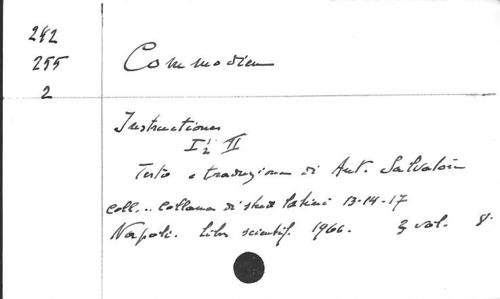 242
255
2
Commodien
Instructiones
I à II
Testo e traduzione di Ant. Salvatore
Coll.. Collana di studi latini 13-14-17
Napoli. Libr. scientif. 1966. 3 vol. 8°